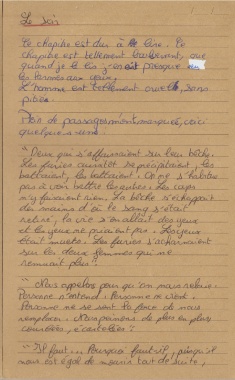 Le Soir
Le chapitre est dur à lire. Ce
chapitre est tellement bouleversant, que
quand je le lis j'en ai presque eu
les larmes aux yeux.
L'homme est tellement cruel, sans
pitié.
de passages m'ont marqué, voici
quelques uns
" Deux qui s'affaissaient sur leur bêche.
Les furies aussitôt se précipitaient, les
battaient, les battaient. On ne s'habitue
pas à voir battre les autres. Les corps
n'y faisaient rien. La bêche s'échappait
des mains d'où le sang s'était
retiré, la vie s'en allait des yeux
et les yeux ne priaient pas. Les yeux
était muets. Les furies s'acharnaient
sur les deux femmes qui ne
remuaient plus "
" Nous appelons pour qu'on nous relève.
Personne n'entend. Personne ne vient.
Personne ne se sent la force de nous
remplacer. Nous peinons de plus en plus
courbées,
" Il faut... Pourquoi faut-il, puisqu'il
nous est égal de mourir tout de suite,